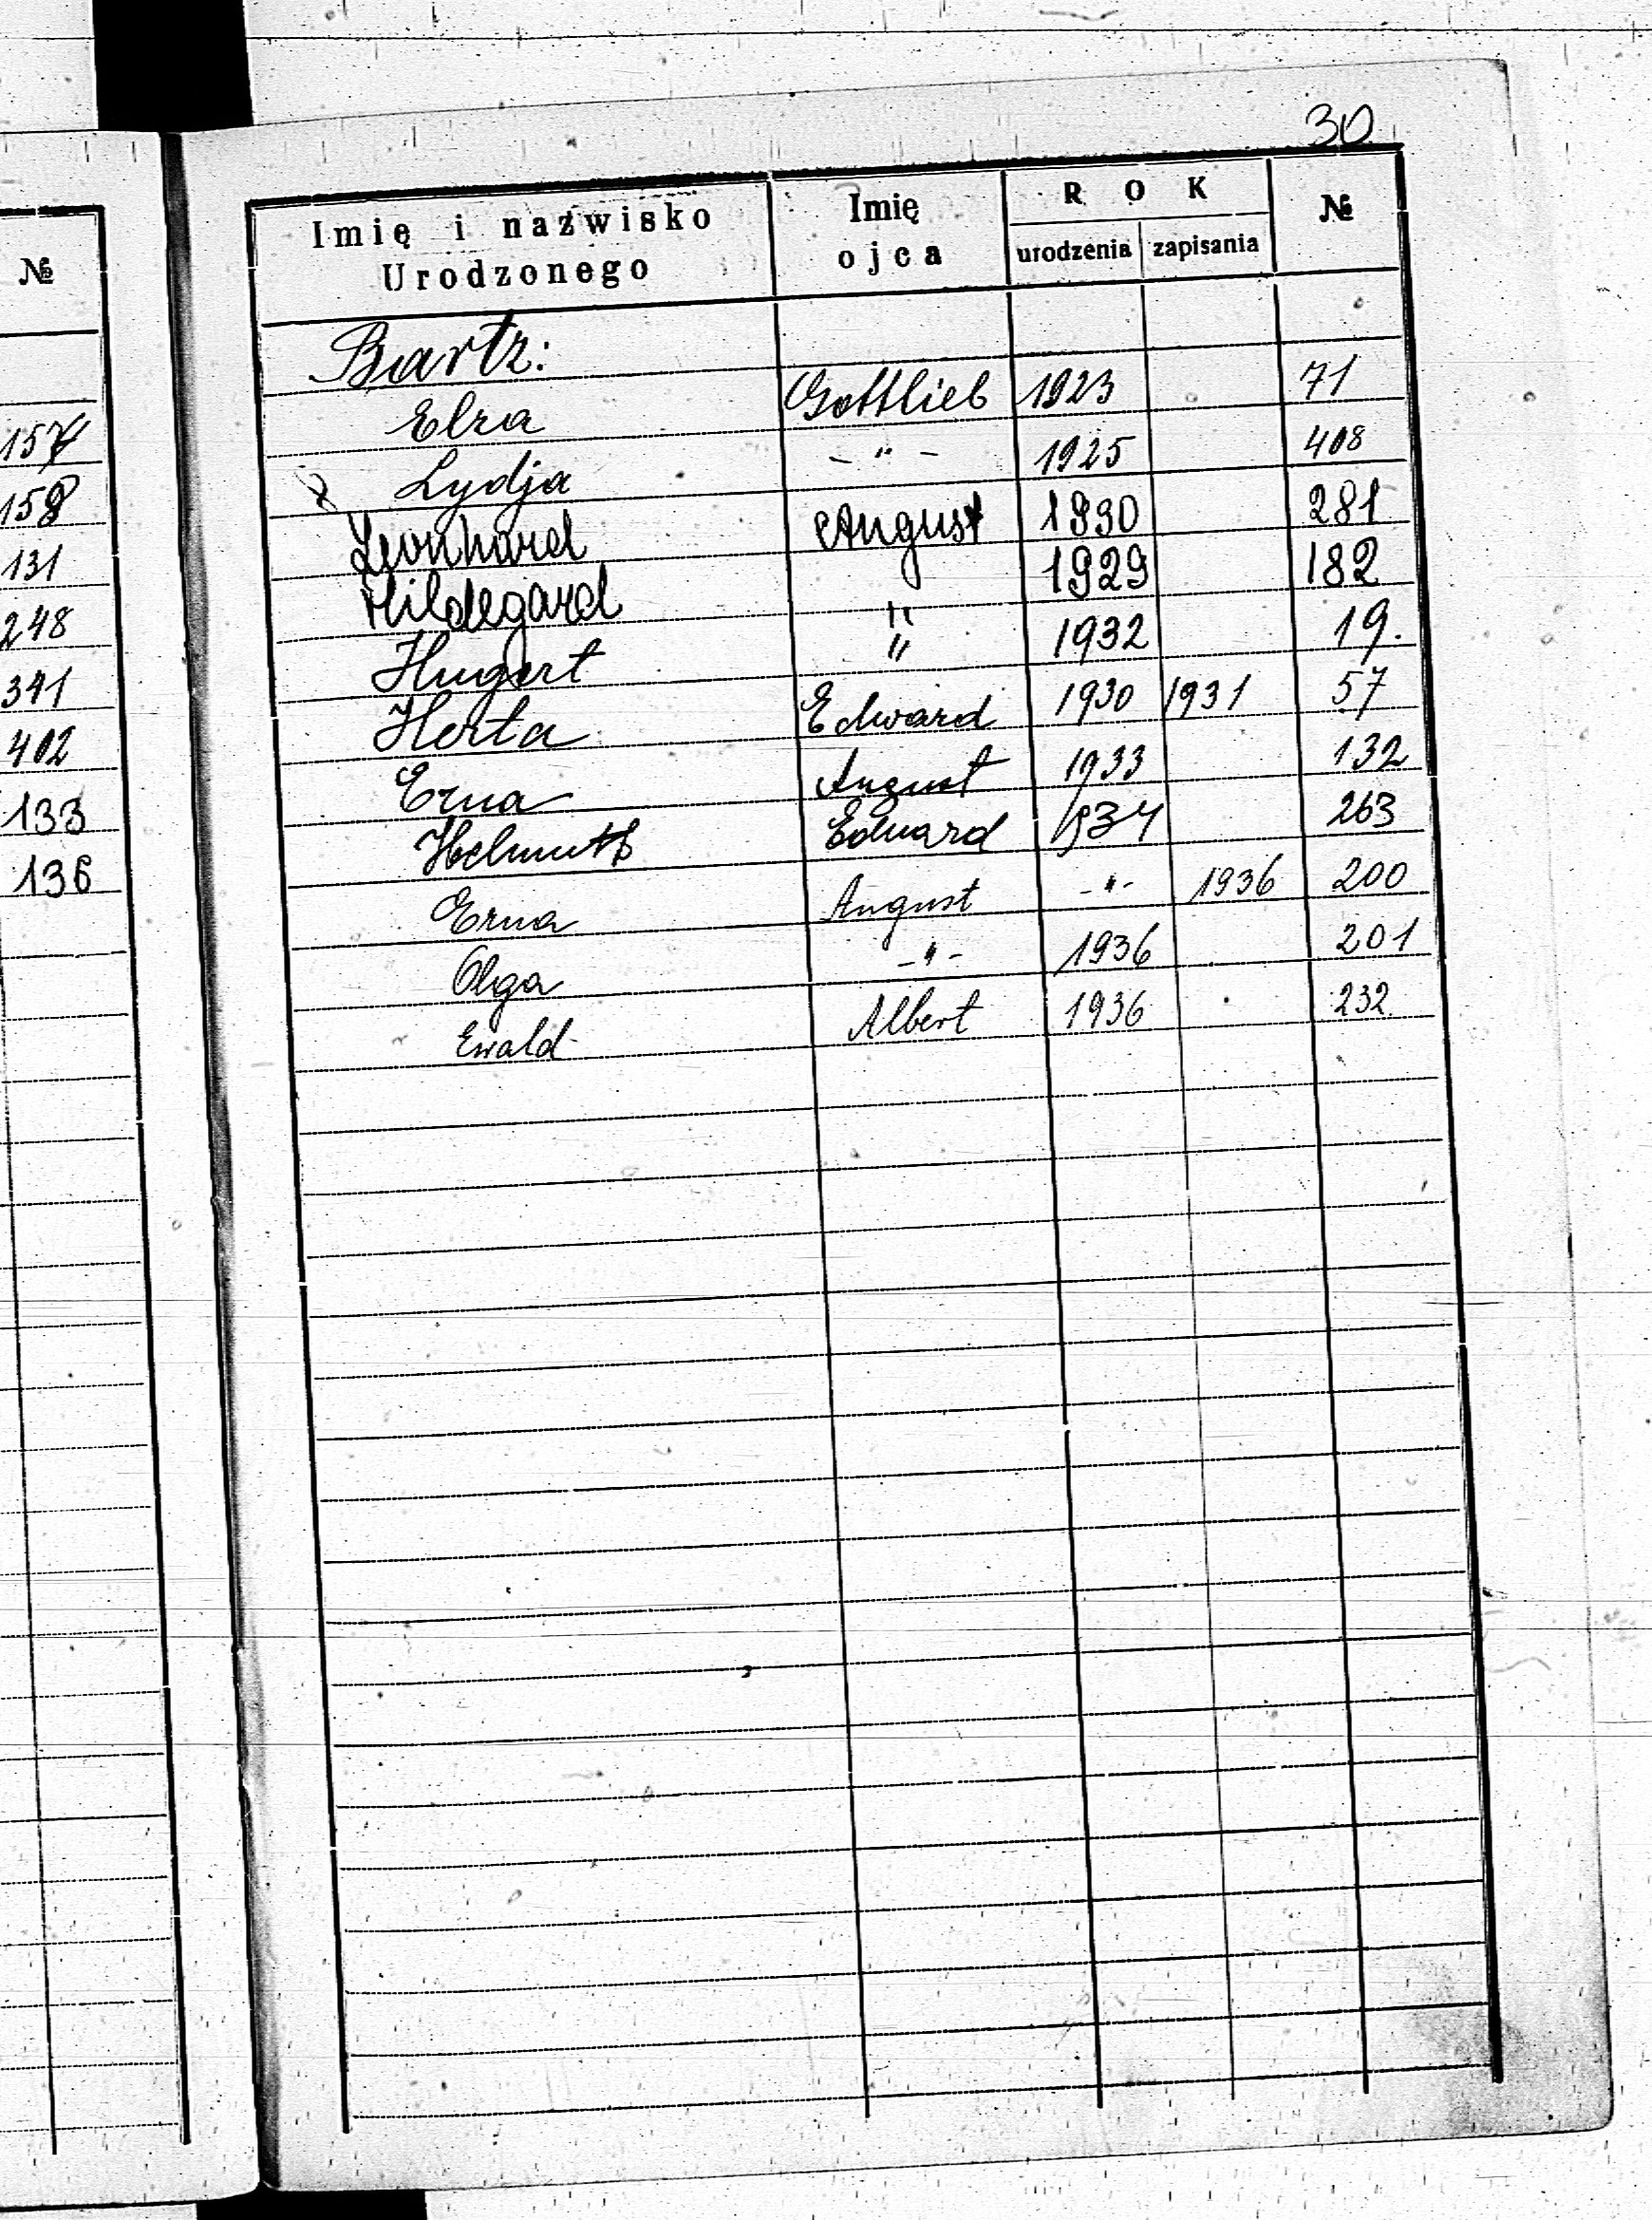 №
157
158
131
248
341
402
133
136
30
Imię i nazwisko Urodzonego | Imię ojca | ROK urodzenia | zapisania | №
Bartz:
Elza Gottlieb 1923 71
Lydja - " - 1925 408
Leonhard August 1930 281
Hildegard " 1929 182
Hugert " 1932 19.
Herta Edward 1930 1931 57
Erna August 1933 132
Helmuth Eduard 1934 263
Erna August - " - 1936 200
Olga - " - 1936 201
Ewald Albert 1936 232